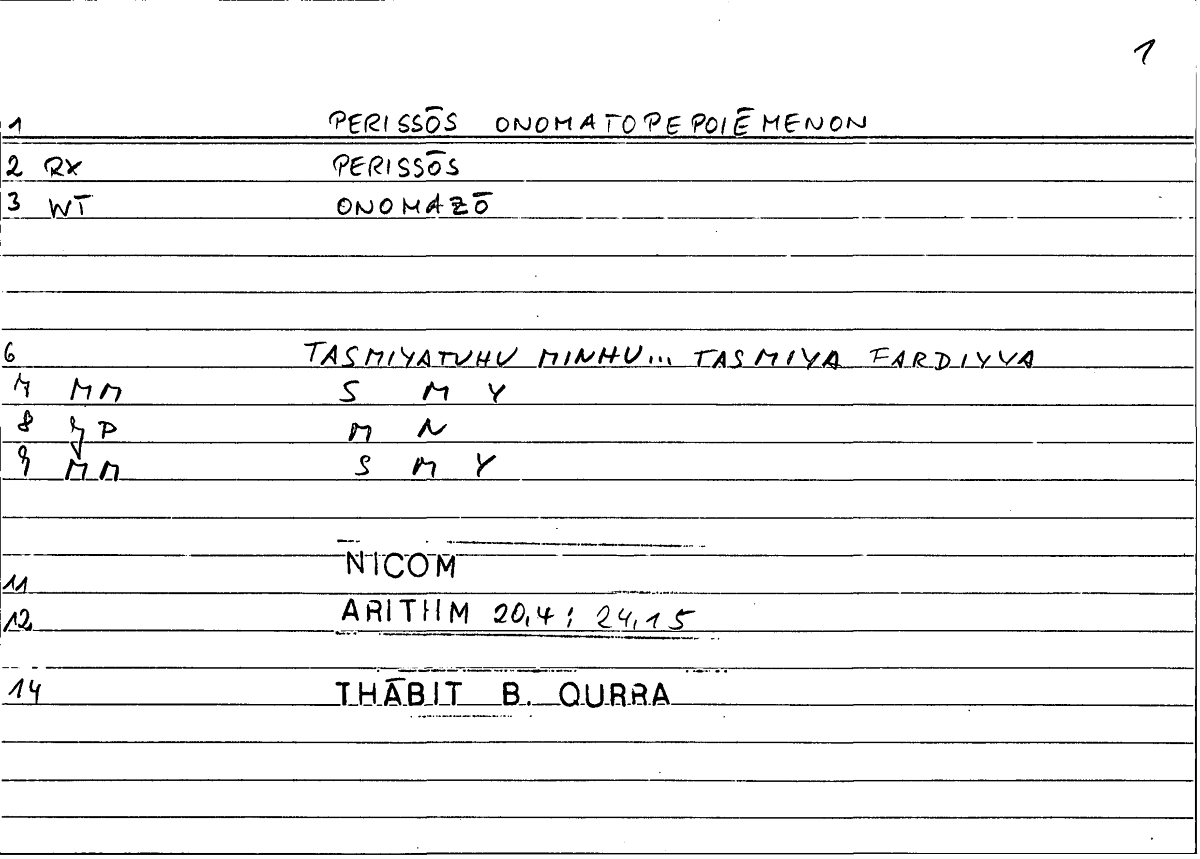 1
1 PERISSŌS ONOMATOPEPOIĒMENON
2 RX PERISSŌS
3 WT ONOMAZŌ
6 TASMIYATUHU MINHU... TASMIYA FARDIYYA
7 MM S M Y
8 P M N
9 MM S M Y
11 NICOM
12 ARITHM 20,4; 24,15
14 THĀBIT B. QURRA